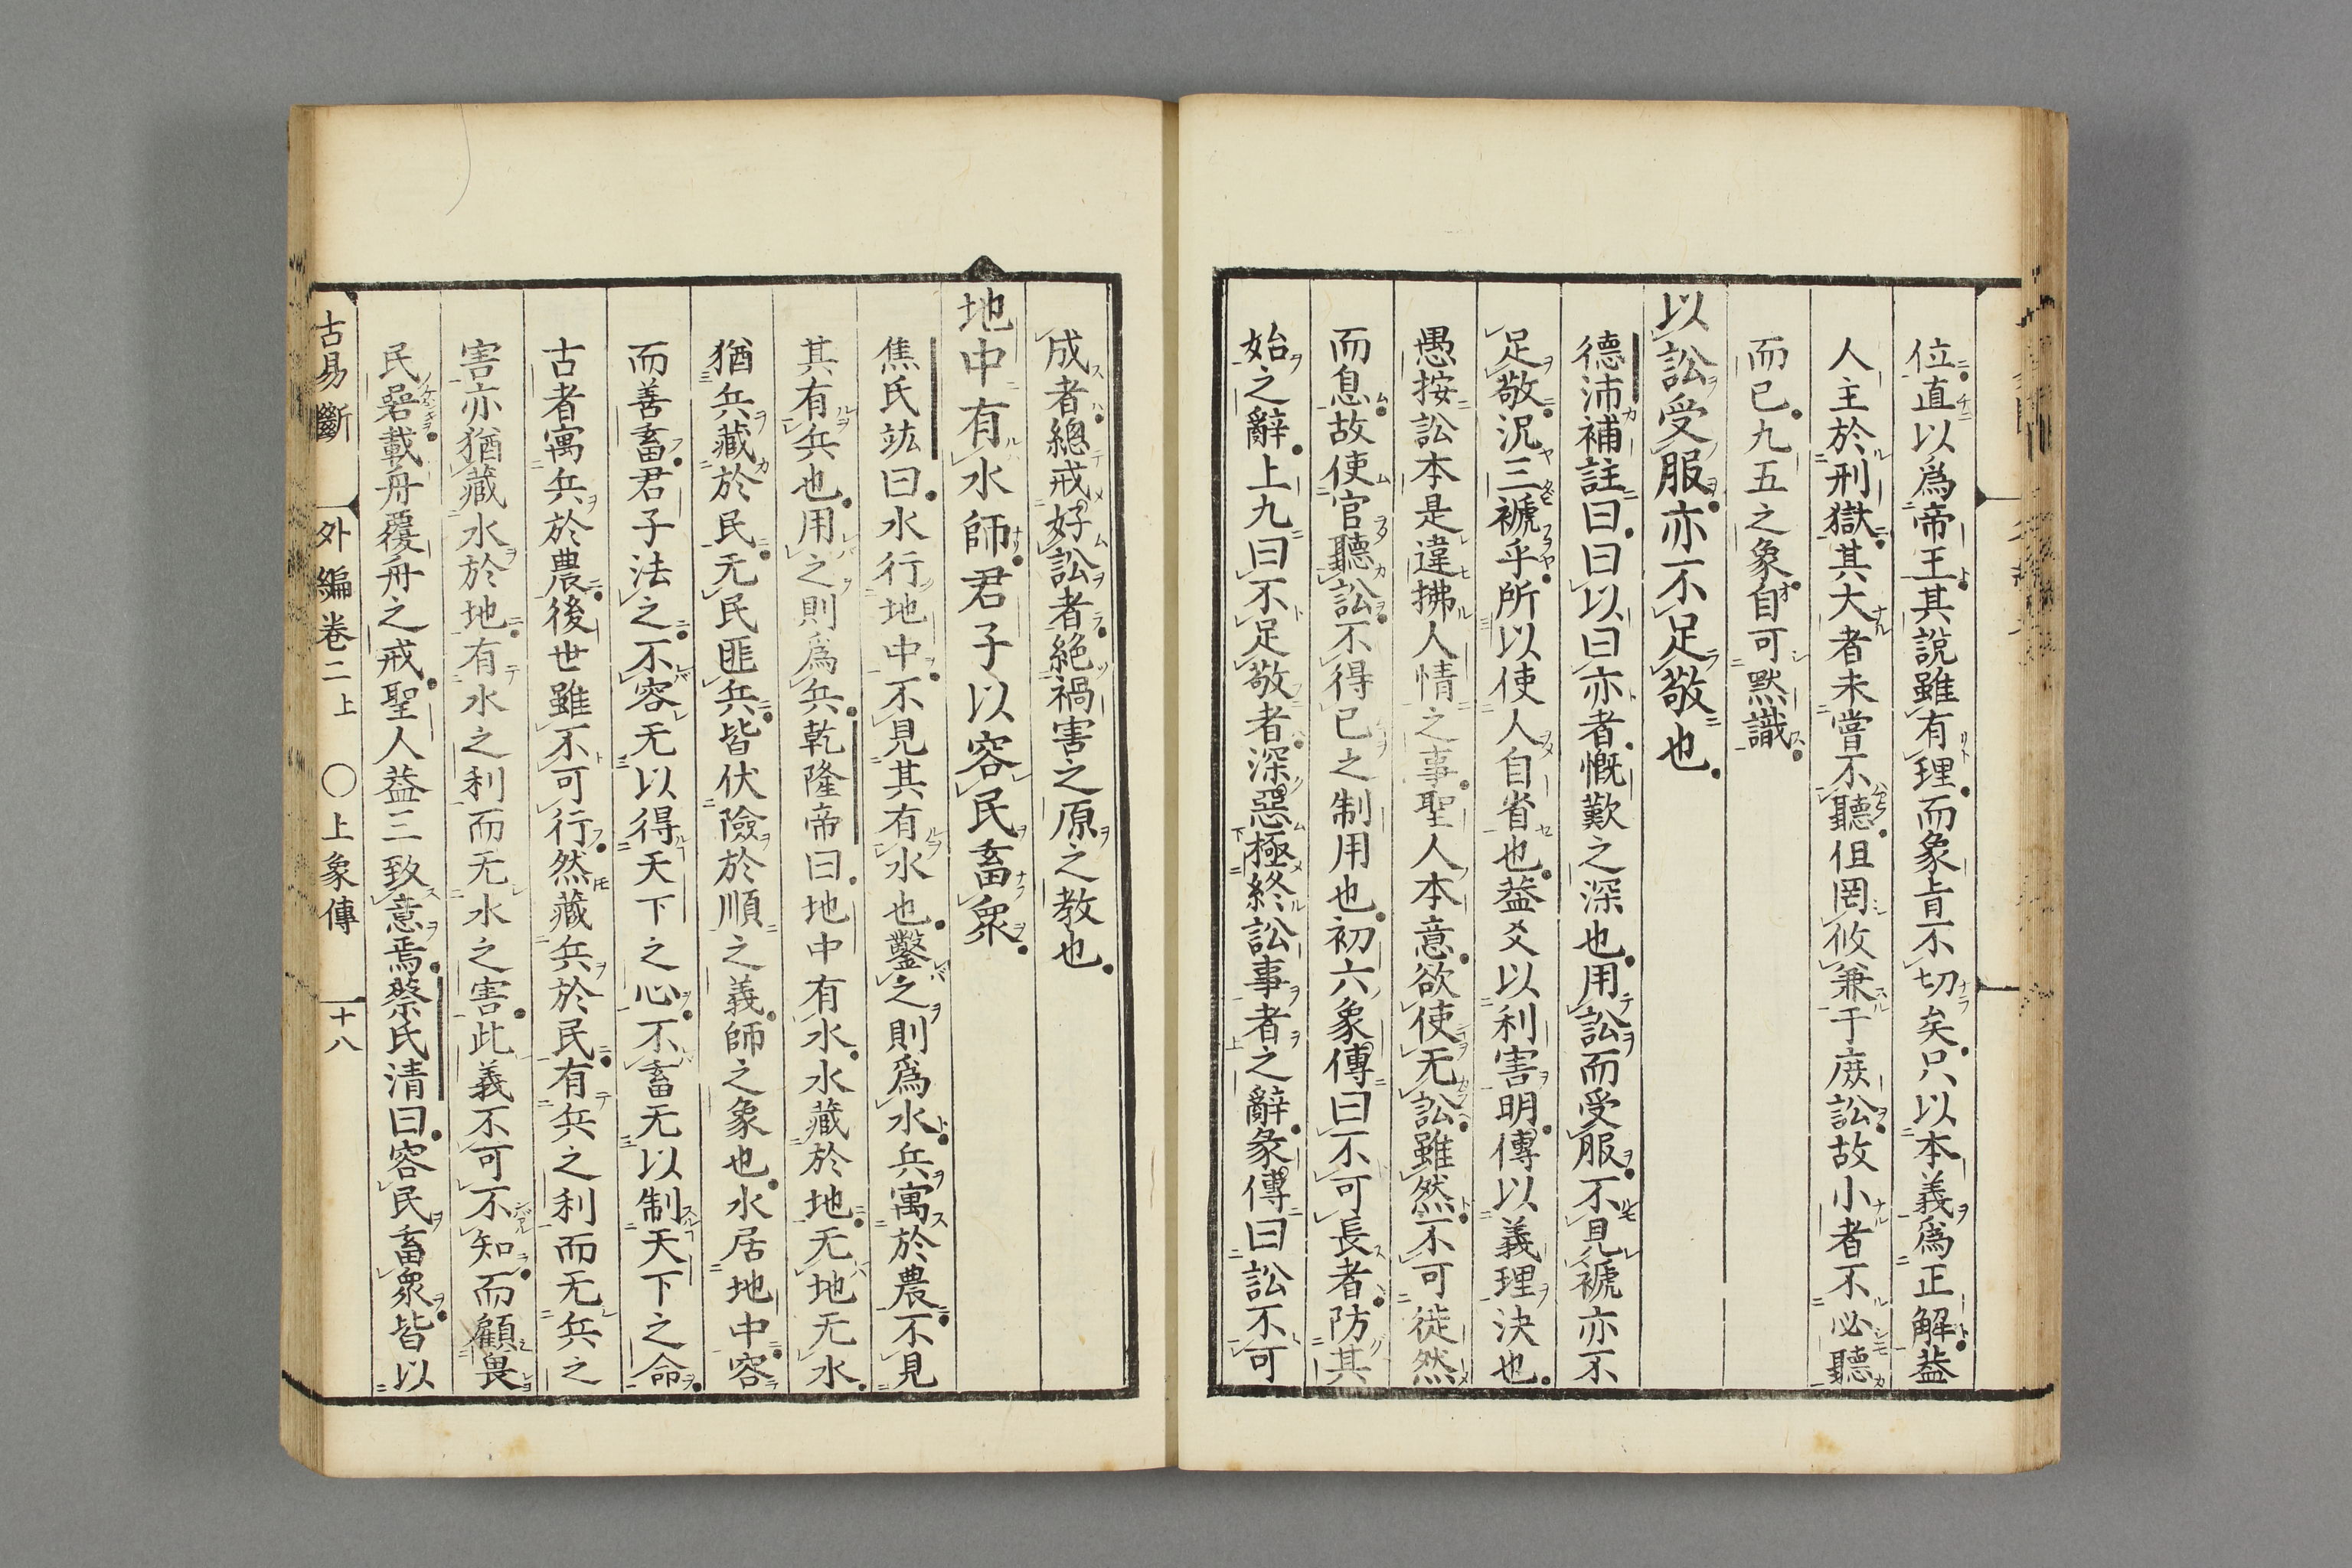 位直以爲帝王其說雖有理而象旨不切矣只以本義爲正解葢
人主於刑獄其大者未嘗不聽但罔攸兼于庶訟故小者不必聽
而已九五之象自可默識
以訟受服亦不足敬也
德沛補註曰曰以曰亦者慨歎之深也用訟而受服不見褫亦不
足敬況三褫乎所以使人自省也葢爻以利害明傳以義理決也
愚按訟本是違拂人情之事聖人本意欲使无訟雖然不可徒然
而息故使官聽訟不得已之制用也初六象傳曰不可長者防其
始之辭上九曰不足敬者深惡極終訟事者之辭彖傳曰訟不可
成者總戒好訟者絶禍害之原之教也
地中有水師君子以容民畜衆
焦氏竑曰水行地中不見其有水也鑿之則爲水兵寓於農不見
其有兵也用之則爲兵乾隆帝曰地中有水水藏於地无地无水
猶兵藏於民无民匪兵皆伏險於順之義師之象也水居地中容
而善畜君子法之不容无以得天下之心不畜无以制天下之命
古者寓兵於農後世雖不可行然藏兵於民有兵之利而无兵之
害亦猶藏水於地有水之利而无水之害此義不可不知而顧畏
民碞載舟覆舟之戒聖人葢三致意焉蔡氏清曰容民畜衆皆以
古易斷 外編卷二上 〇上象傳 十八